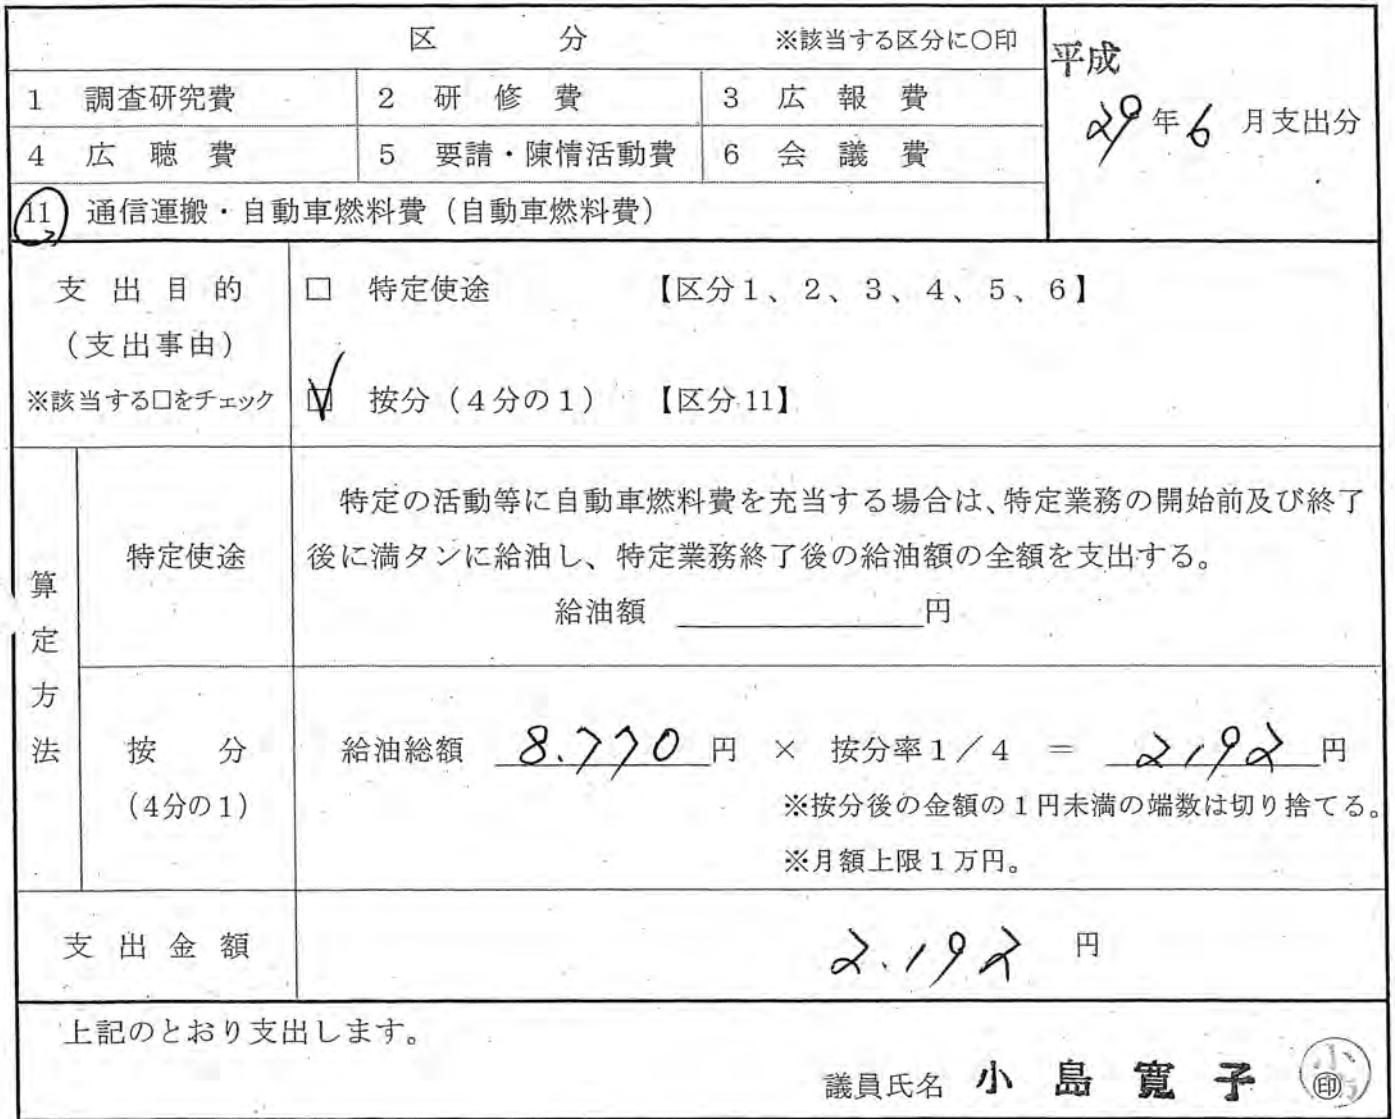 区 分 ※該当する区分に○印
平成
29年6月支出分
1 調査研究費 2 研修費 3 広報費
4 広聴費 5 要請・陳情活動費 6 会議費
11 通信運搬・自動車燃料費（自動車燃料費）
支出目的
（支出事由）
※該当する□をチェック
□ 特定使途 【区分1、2、3、4、5、6】
☑ 按分（4分の1） 【区分11】
算定方法
特定使途
特定の活動等に自動車燃料費を充当する場合は、特定業務の開始前及び終了
後に満タンに給油し、特定業務終了後の給油額の全額を支出する。
給油額 円
按分
（4分の1）
給油総額 8.770円 × 按分率1／4 ＝ 2,192円
※按分後の金額の1円未満の端数は切り捨てる。
※月額上限1万円。
支出金額 2.192 円
上記のとおり支出します。
議員氏名 小島寛子 ㊞